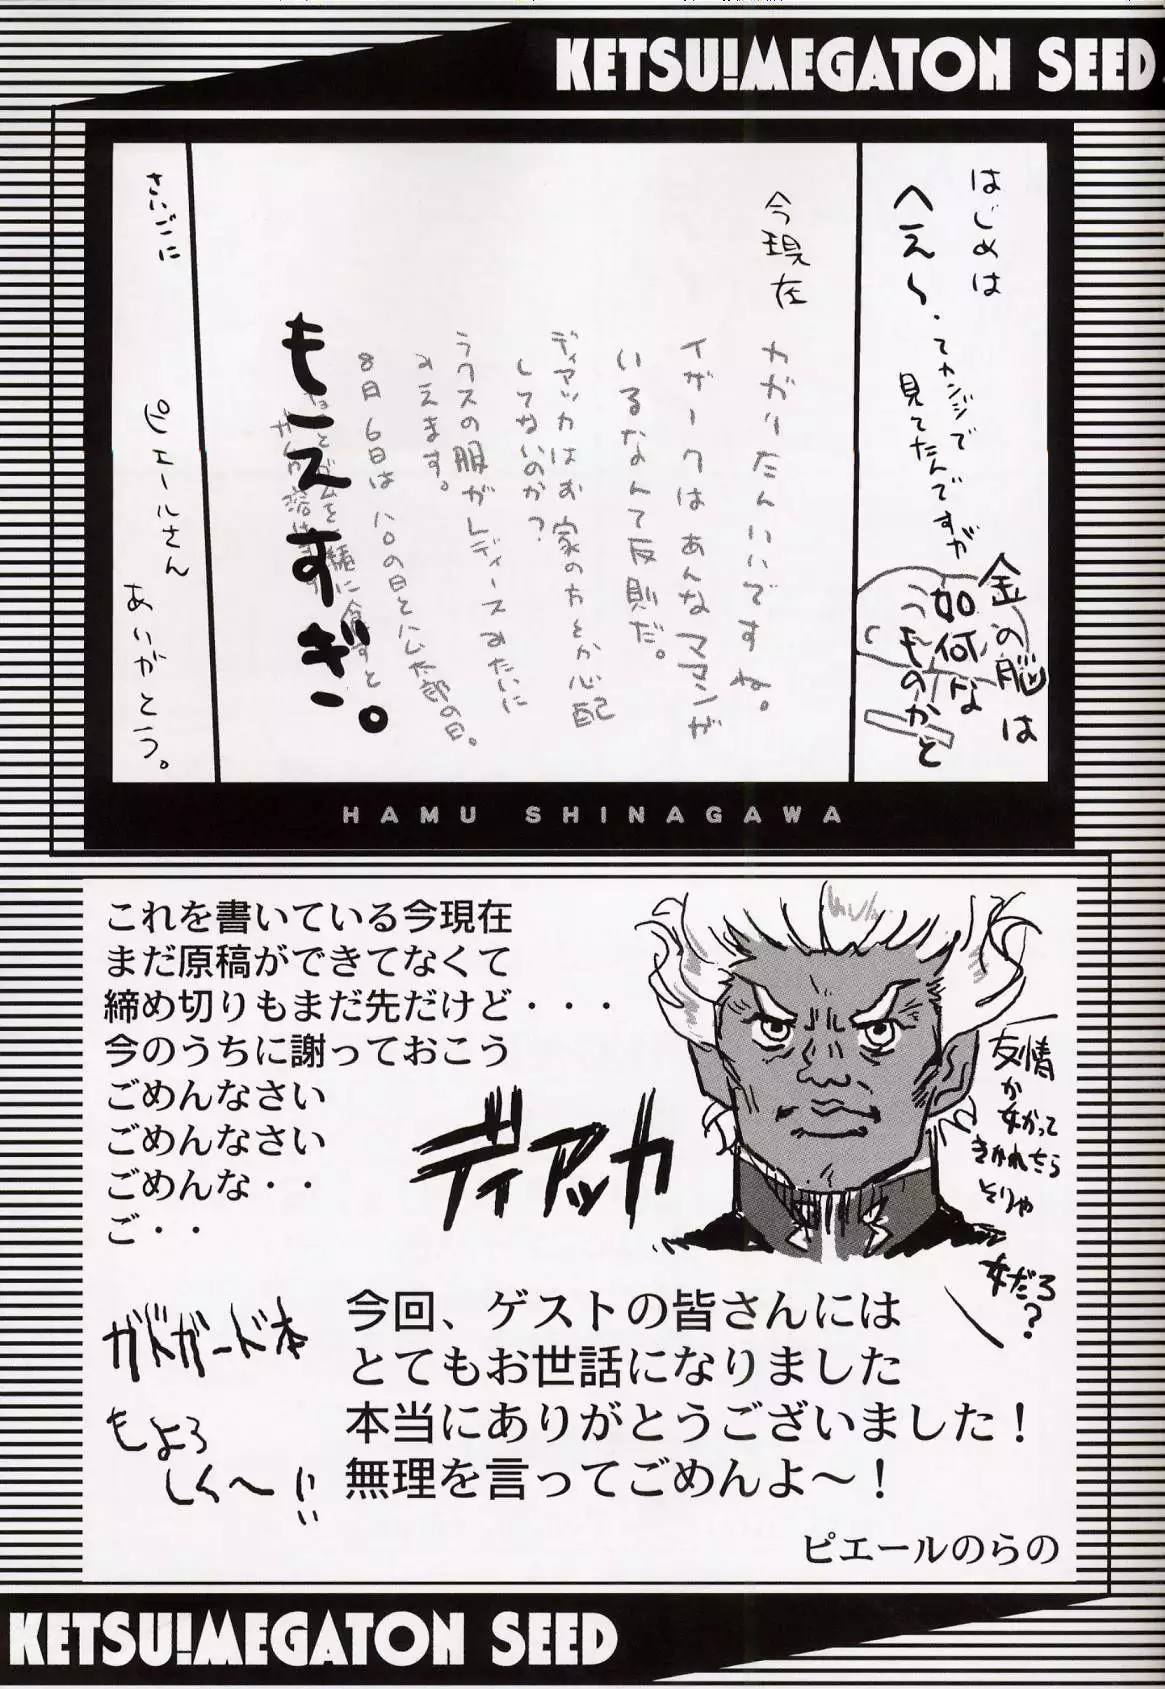 KETSU!MEGATON SEED
はじめは
へえ〜・てカンジで
見てたんですが
金の脳は
如何な
ものかと
今現在
カガリたんいいですね。
イザークはあんなママンが
いるなんて反則だ。
ディアッカはお家の方とか心配
してないのか?
ラクスの服がレディースみたいに
みえます。
8月6日はハムの日とハム太郎の日。
もえすぎ。
さいごに
ピエールさん
ありがとう。
HAMU SHINAGAWA
これを書いている今現在
まだ原稿ができてなくて
締め切りもまだ先だけど・・・
今のうちに謝っておこう
ごめんなさい
ごめんなさい
ごめんな・・
ご・・
ディアッカ
友情
か女かって
きかれたら
そりゃ
女だろ
?
ガドガード本
もよろ
しく〜!!
今回、ゲストの皆さんには
とてもお世話になりました
本当にありがとうございました!
無理を言ってごめんよ〜!
ピエールのらの
KETSU!MEGATON SEED